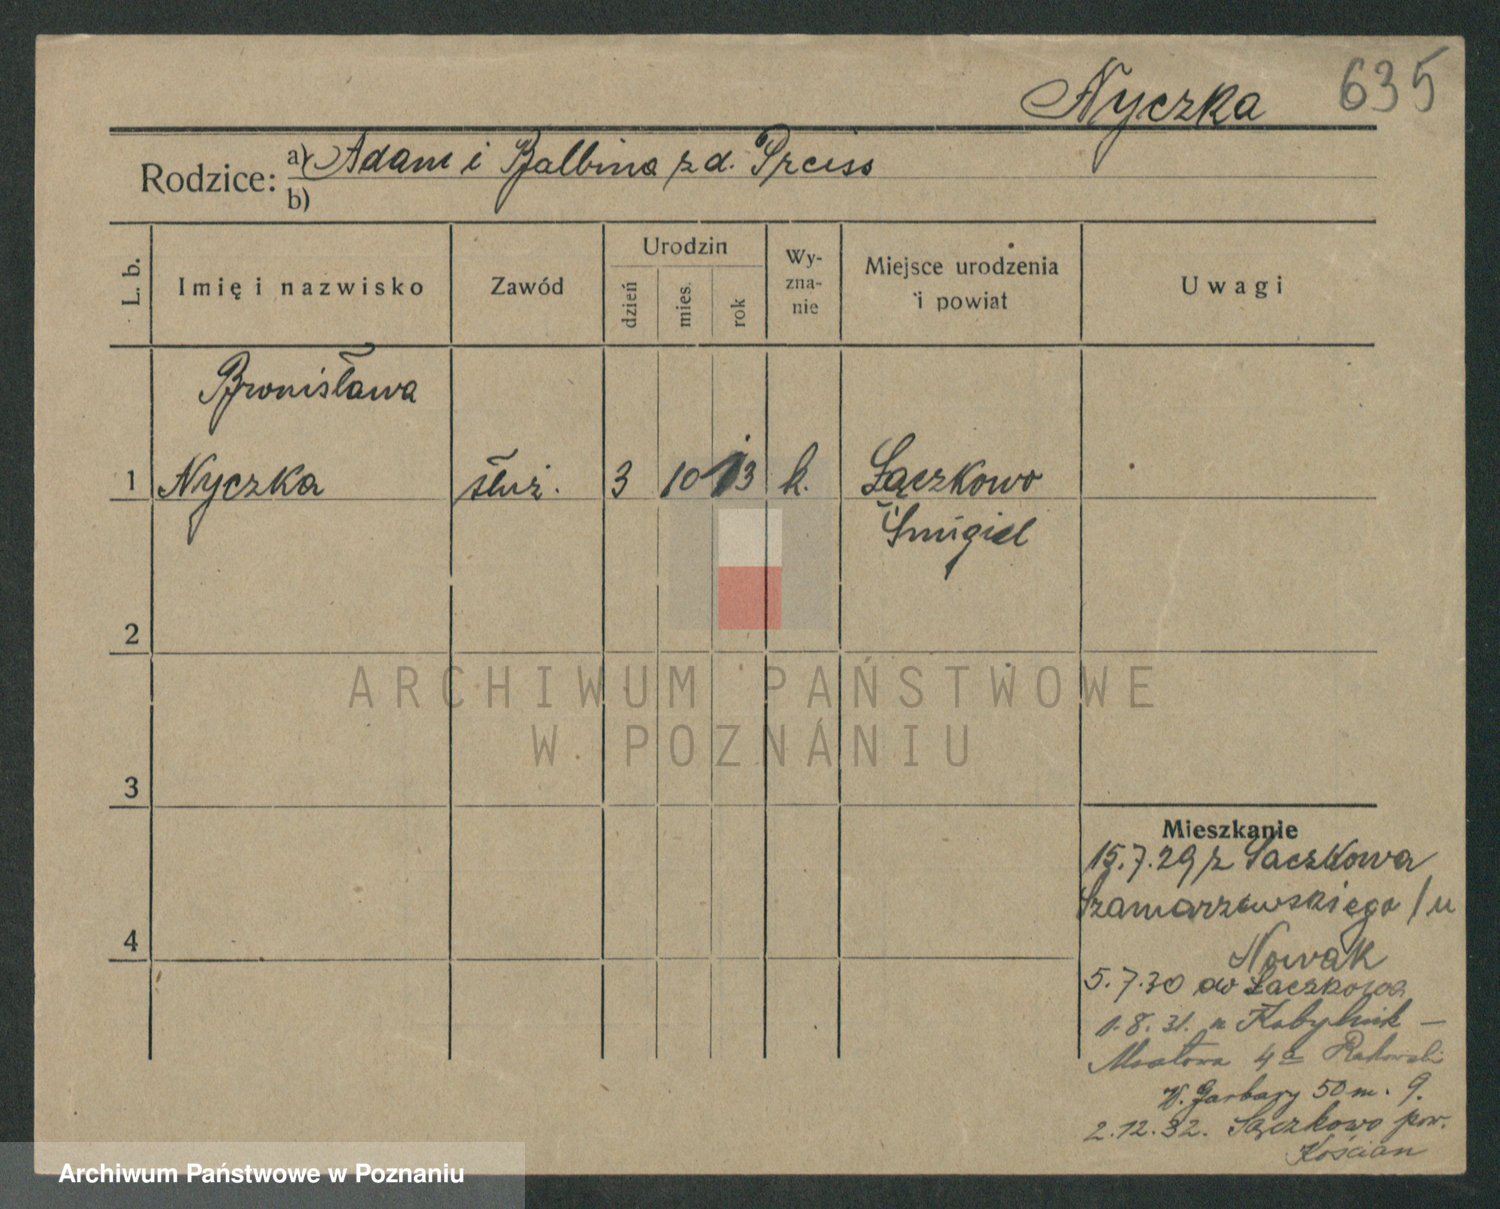 Nyczka 635
Rodzice: a) Adam i Balbina z d. Preiss
b)
L. b. Imię i nazwisko Zawód Urodzin dzień mies. rok Wyznanie Miejsce urodzenia i powiat Uwagi
Bronisława
1 Nyczka służ. 3 10 13 k. Łączkowo
Śmigiel
2
ARCHIWUM PAŃSTWOWE
W POZNANIU
3
Mieszkanie
15.7.29 z Łaczkowa
Szamarzewskiego / u
4
Nowak
5.7.30 do Łaczkowa
1.8.31. z Kobylnik –
Masztowa 4a Rakowski
W. Garbary 50 m. 9.
2.12.32. Łączkowo pow.
Kościan
Archiwum Państwowe w Poznaniu